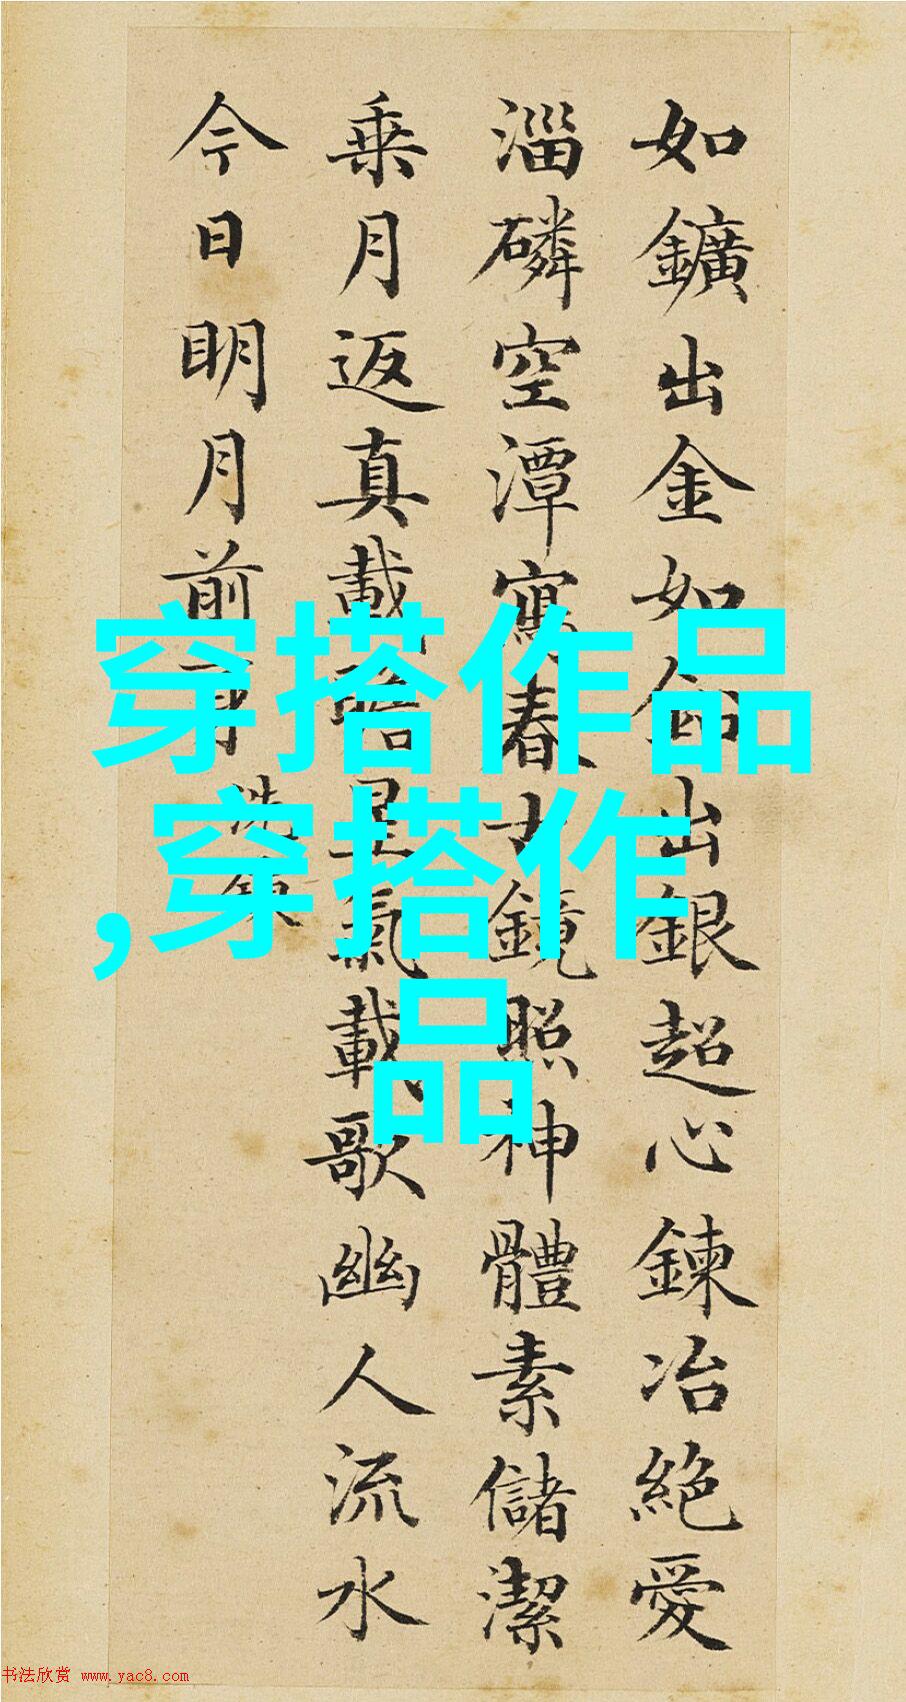 如鑛出金如鉛出銀超心鍊冶絕愛
淄磷空潭寫春古鏡照神體素儲潔
乘月返真載瞻星氣載歌幽人流水
今日明月前身
洗鍊
穿搭作品
,穿搭作
品
书法欣赏 www.yac8.com